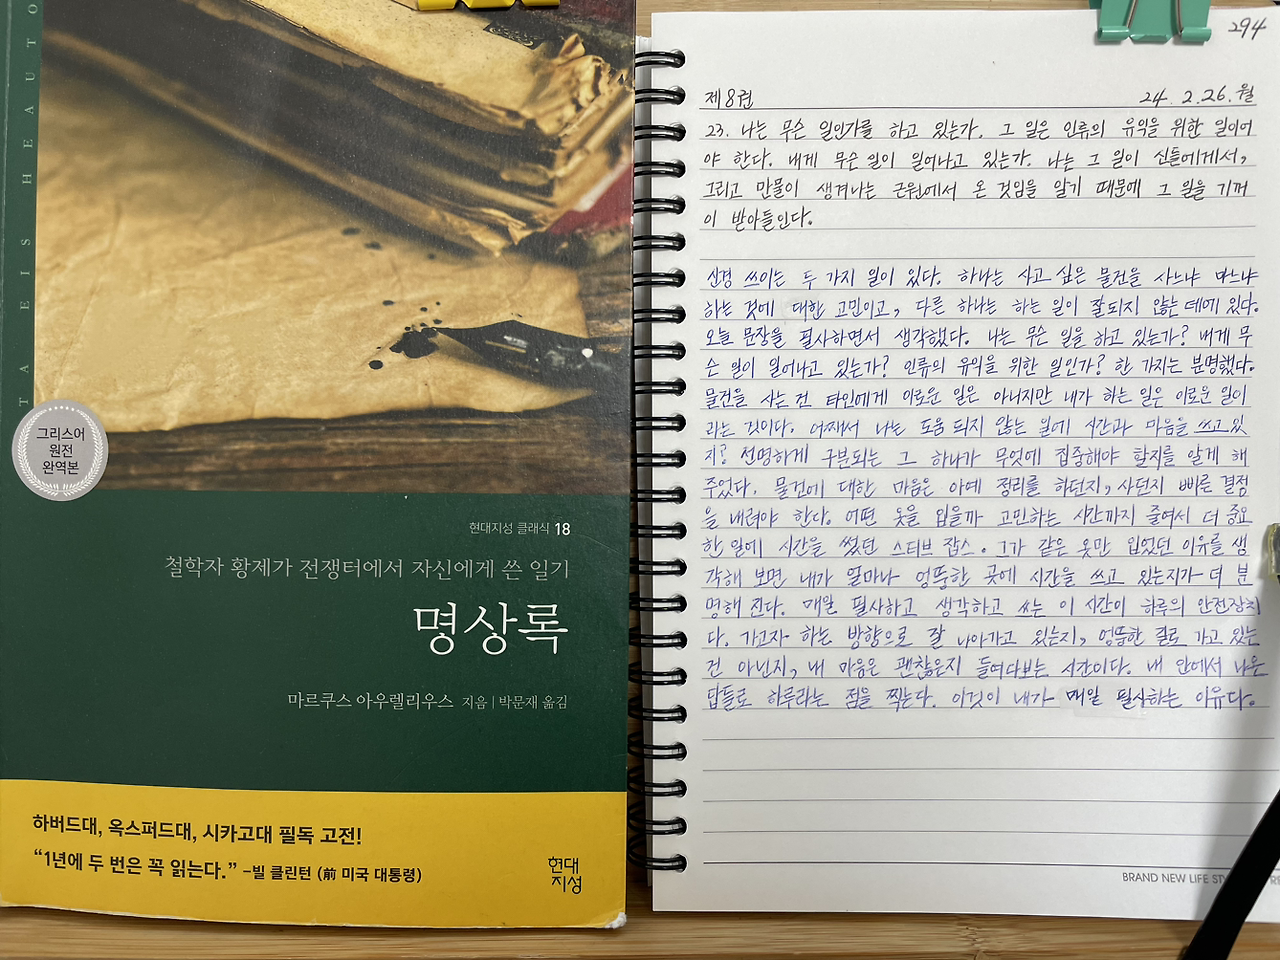 TA EIS HEAUTO
그리스어
원전
완역본
현대지성 클래식 18
철학자 황제가 전쟁터에서 자신에게 쓴 일기
명상록
마르쿠스 아우렐리우스 지음 | 박문재 옮김
하버드대, 옥스퍼드대, 시카고대 필독 고전!
“1년에 두 번은 꼭 읽는다.” –빌 클린턴 (前 미국 대통령)
현대
지성
294
제8권 24. 2.26. 월
23. 나는 무슨 일인가를 하고 있는가. 그 일은 인류의 유익을 위한 일이어
야 한다. 내게 무슨 일이 일어나고 있는가. 나는 그 일이 신들에게서,
그리고 만물이 생겨나는 근원에서 온 것임을 알기 때문에 그 일을 기꺼
이 받아들인다.
신경 쓰이는 두 가지 일이 있다. 하나는 사고 싶은 물건을 사느냐 마느냐
하는 것에 대한 고민이고, 다른 하나는 하는 일이 잘되지 않는 데에 있다.
오늘 문장을 필사하면서 생각했다. 나는 무슨 일을 하고 있는가? 내게 무
슨 일이 일어나고 있는가? 인류의 유익을 위한 일인가? 한 가지는 분명했다.
물건을 사는 건 타인에게 이로운 일은 아니지만 내가 하는 일은 이로운 일이
라는 것이다. 어째서 나는 도움 되지 않는 일에 시간과 마음을 쓰고 있
지? 선명하게 구분되는 그 하나가 무엇에 집중해야 할지를 알게 해
주었다. 물건에 대한 마음은 아예 정리를 하던지, 사던지 빠른 결정
을 내려야 한다. 어떤 옷을 입을까 고민하는 시간까지 줄여서 더 중요
한 일에 시간을 썼던 스티브 잡스. 그가 같은 옷만 입었던 이유를 생
각해 보면 내가 얼마나 엉뚱한 곳에 시간을 쓰고 있는지가 더 분
명해 진다. 매일 필사하고 생각하고 쓰는 이 시간이 하루의 안전장치
다. 가고자 하는 방향으로 잘 나아가고 있는지, 엉뚱한 길로 가고 있는
건 아닌지, 내 마음은 괜찮은지 들여다보는 시간이다. 내 안에서 나온
답들로 하루라는 점을 찍는다. 이것이 내가 매일 필사하는 이유다.
BRAND NEW LIFE